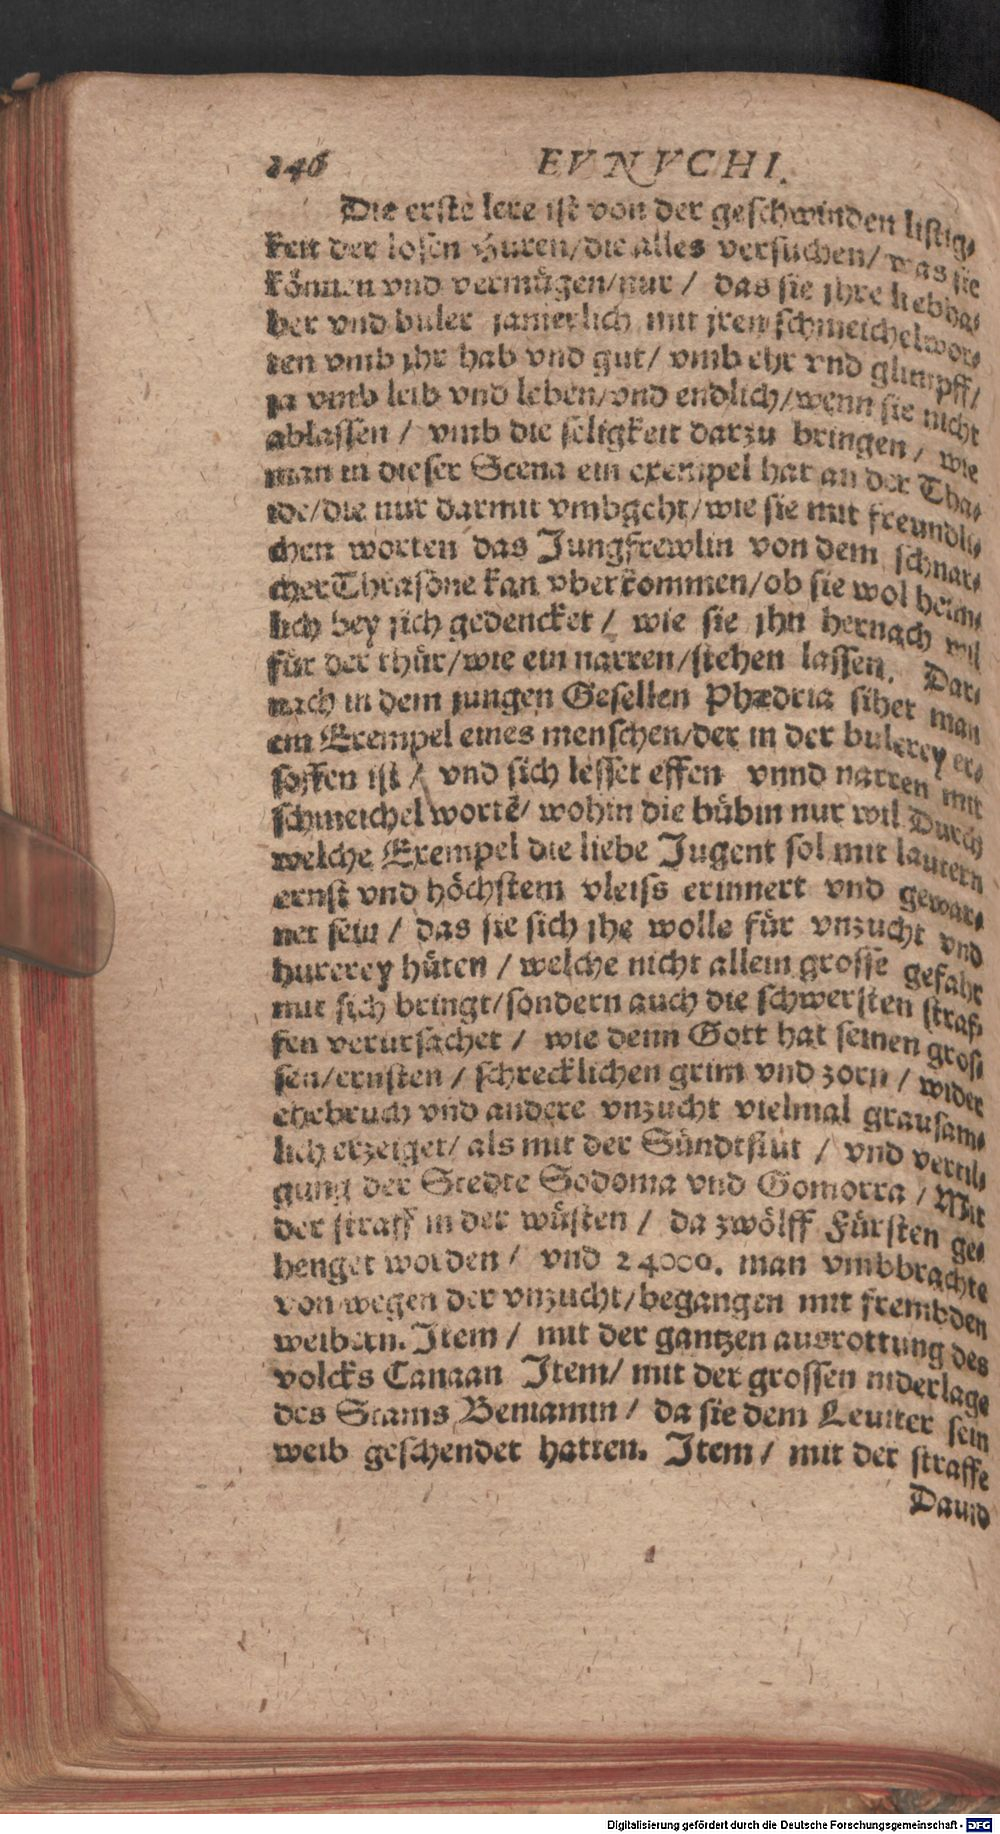 246 EVNVCHI.
Die erste lere ist von der geschwinden listig-
keit der losen Huren/die alles versuchen/was sie
können vnd vermügen/nur / das sie jhre liebha-
ber vnd buler jamerlich mit jren schmeichelwor-
ten vmb jhr hab vnd gut/ vmb ehr vnd glimpff/
ja vmb leib vnd leben/vnd endlich/wenn sie nicht
ablassen / vmb die seligkeit darzu bringen / wie
man in dieser Scena ein exempel hat an der Tha-
ide/die nur darmit vmbgeht/wie sie mit freundli-
chen worten das Jungfrewlin von dem schnar-
cher Thrasone kan vberkommen/ob sie wol heim-
lich bey sich gedencket / wie sie jhn hernach wil
für der thür/wie ein narren/stehen lassen. Dar-
nach in dem jungen Gesellen Phædria sihet man
ein Exempel eines menschen/der in der bulerey er-
soffen ist / vnd sich lesset effen vnnd narren mit
schmeichel wortē/ wohin die bübin nur wil Durch
welche Exempel die liebe Jugent sol mit lautern
ernst vnd höchstem vleiss erinnert vnd gewar-
net sein / das sie sich jhe wolle für vnzucht vnd
hurerey hüten / welche nicht allein grosse gefahr
mit sich bringt/sondern auch die schwersten straf-
fen verursachet / wie denn Gott hat seinen gros-
sen/ernsten / schrecklichen grim vnd zorn / wider
ehebruch vnd andere vnzucht vielmal grausam-
lich erzeiget/ als mit der Sündtflut / vnd vertil-
gung der Stedte Sodoma vnd Gomorra / Mit
der straff in der wüsten / da zwölff Fürsten ge-
henget worden / vnd 24000. man vmbbrachte
von wegen der vnzucht/begangen mit frembden
weibern. Item / mit der gantzen ausrottung des
volcks Canaan Item/ mit der grossen niderlage
des Stams Beniamin / da sie dem Leuiter sein
weib geschendet hatten. Item / mit der straffe
Dauid
Digitalisierung gefördert durch die Deutsche Forschungsgemeinschaft - DFG